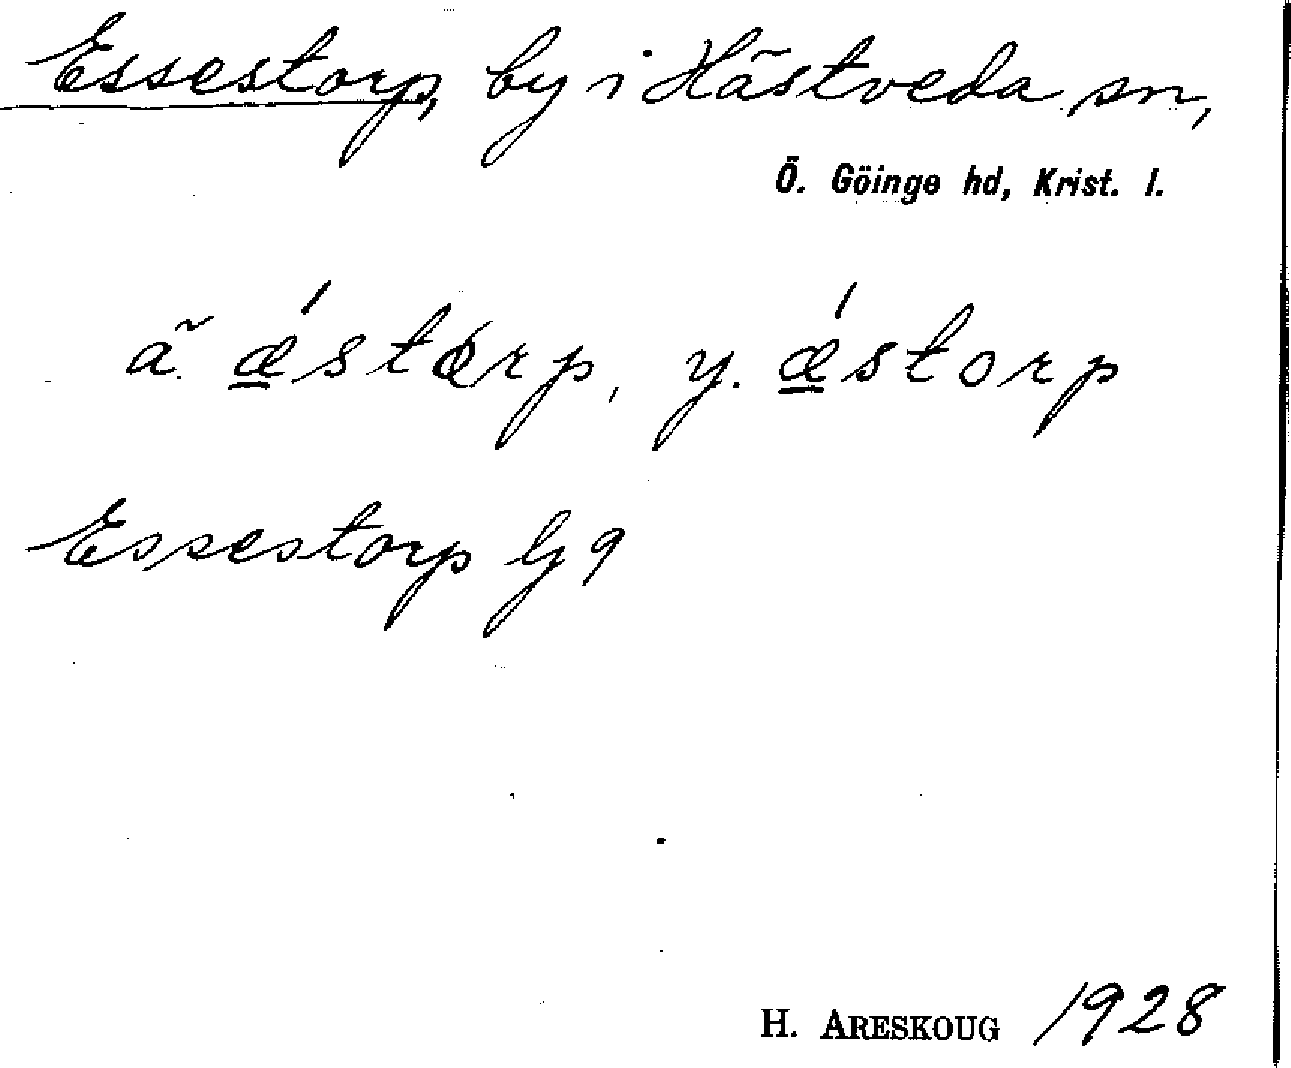 Essestorp, by i Hästveda sn,
Ö. Göinge hd, Krist. l.
ä. ǽstørp, y. ǽstorp
Essestorp by 9
H. ARESKOUG 1928